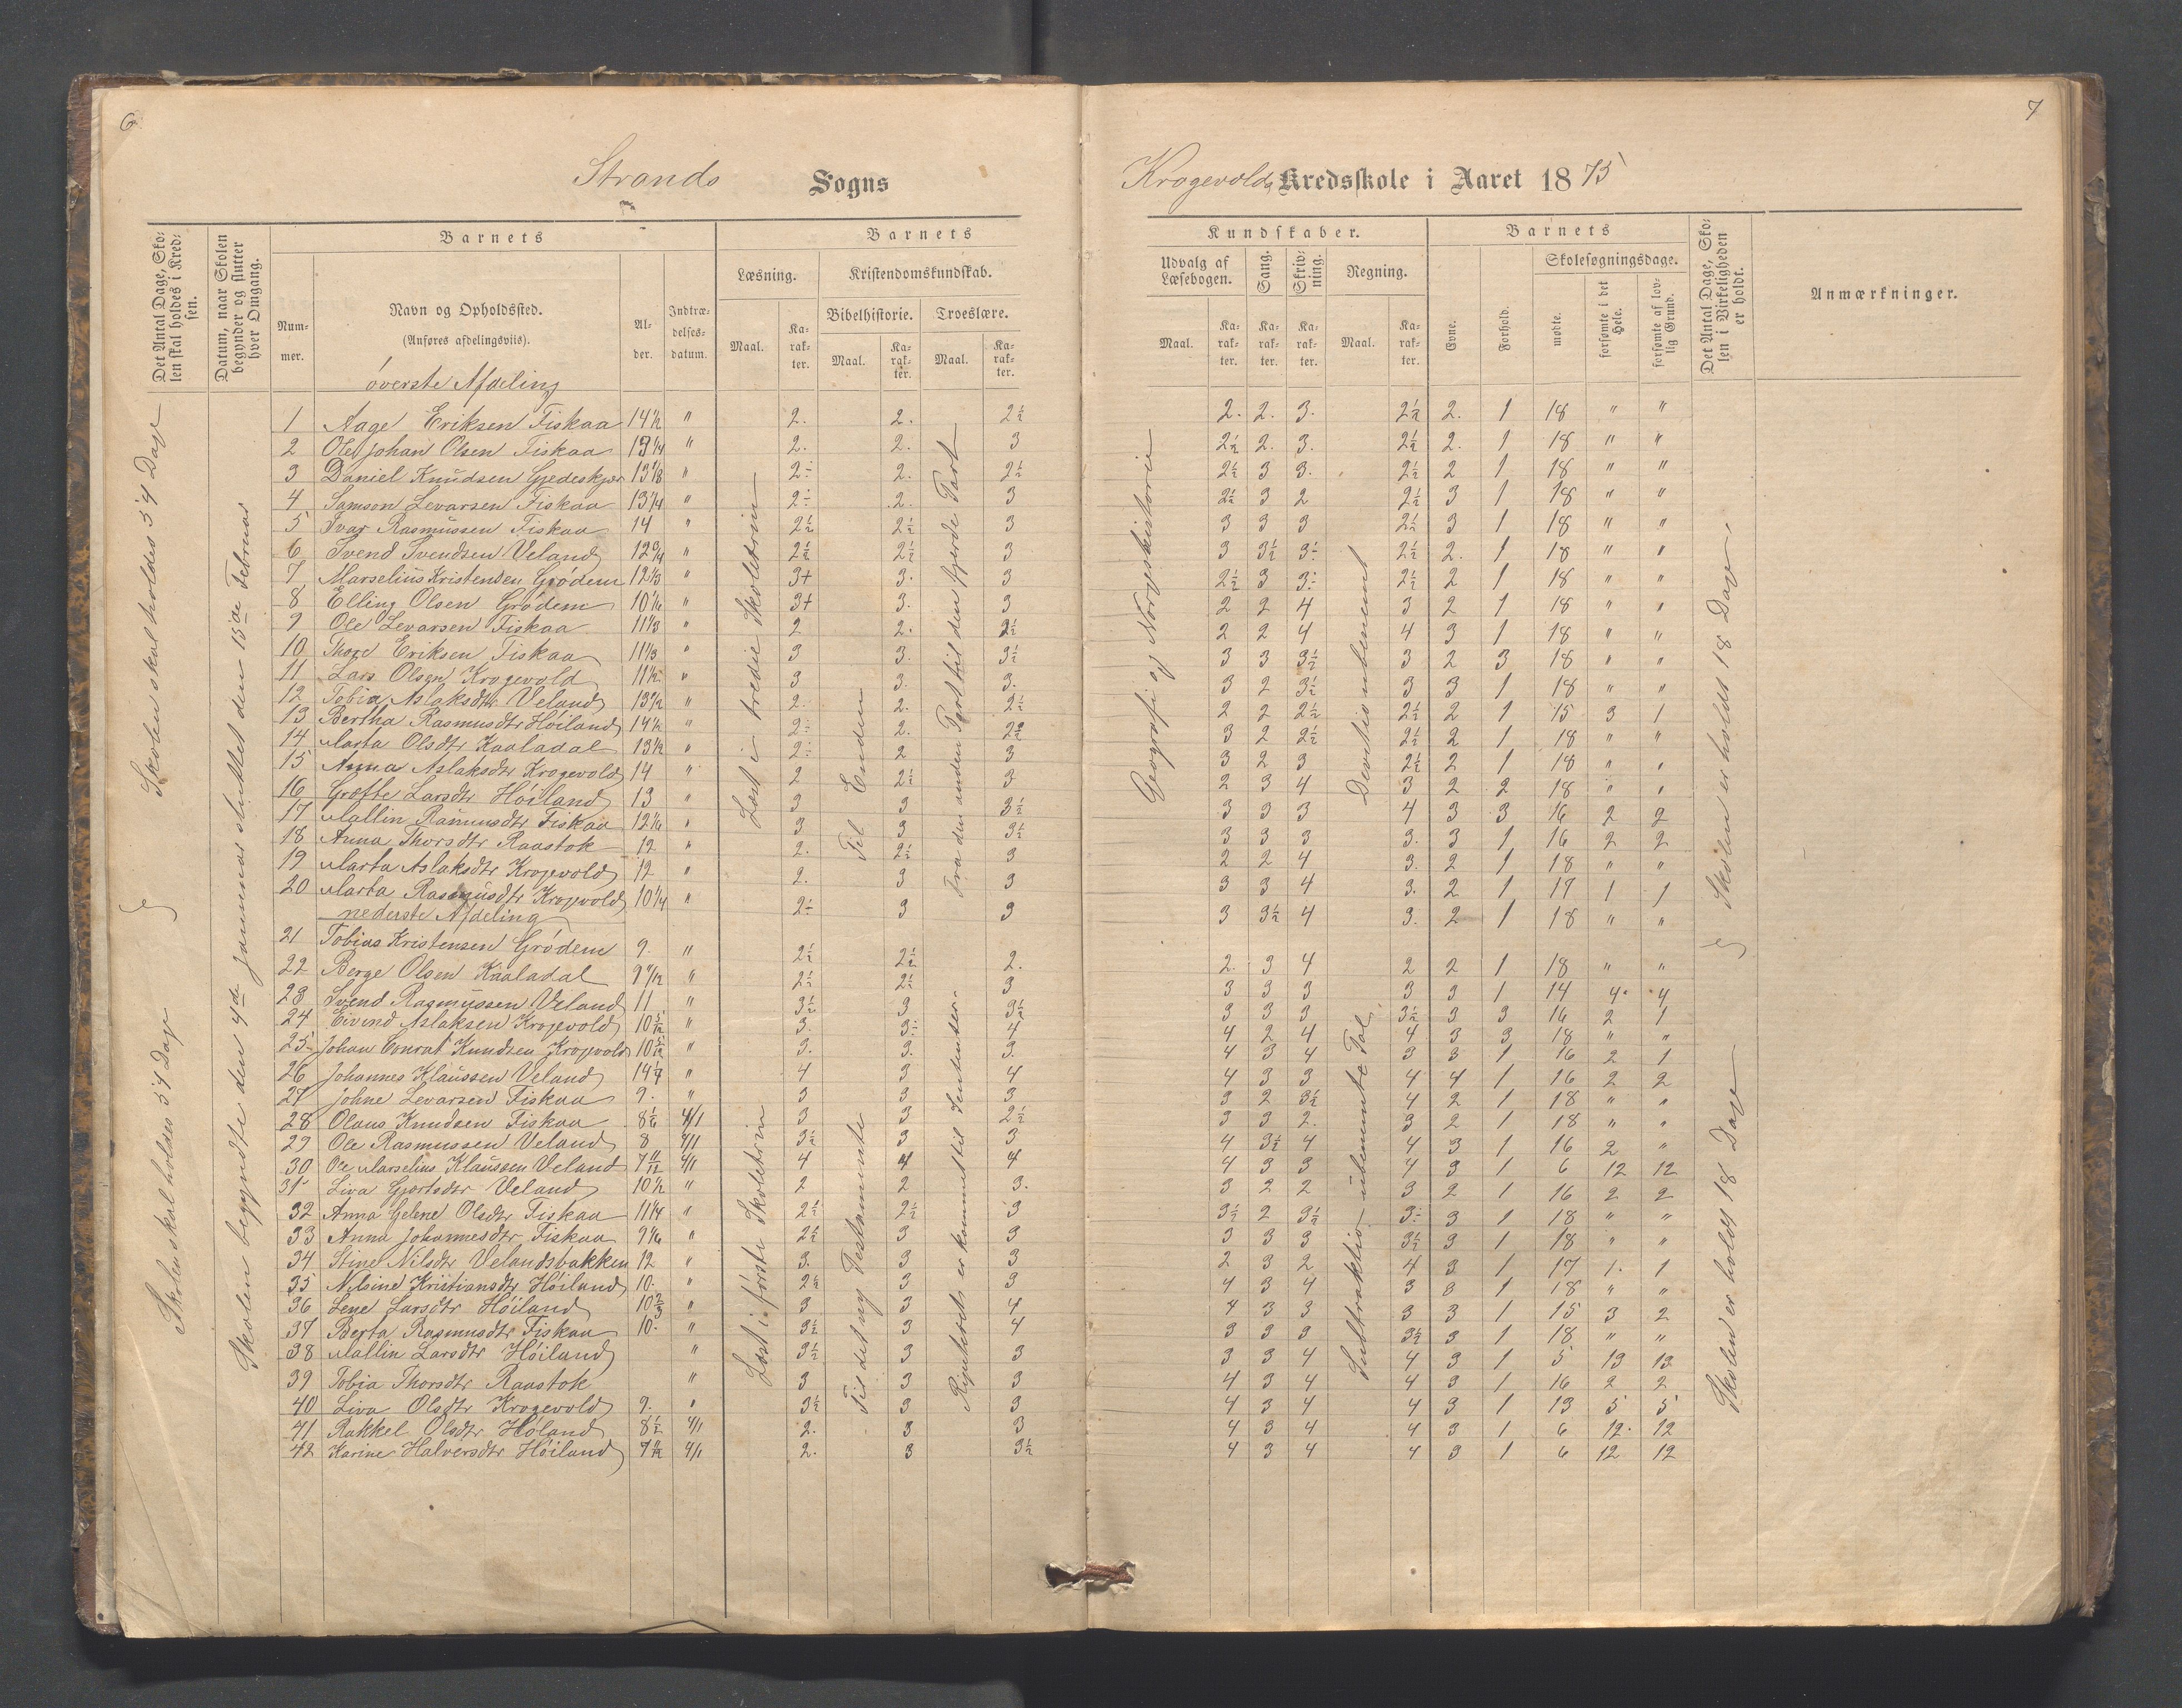 6
7
Strands Sogns
Krogevolds Kredsskole i Aaret 1875
Det Antal Dage, Skolen skal holdes i Kredsen.
Datum, naar Skolen begynder og slutter hver Omgang.
Barnets
Nummer.
Navn og Opholdssted.
(Anføres afdelingsviis).
Alder.
Indtrædelsesdatum.
Barnets
Læsning.
Kristendomskundskab.
Bibelhistorie.
Troeslære.
Maal. Karakter. Maal. Karakter. Maal. Karakter.
Kundskaber.
Udvalg af Læsebogen.
Sang.
Skrivning.
Regning.
Maal. Karakter. Karakter. Karakter. Maal. Karakter.
Barnets
Evne.
Forhold.
Skolesøgningsdage.
mødte.
forsømte i det Hele.
forsømte af lovlig Grund.
Det Antal Dage, Skolen i Virkeligheden er holdt.
Anmærkninger.
øverste Afdeling
1 Aage Eriksen Fiskaa 14½ " 2. 2. 2½ 2. 2. 3. 2½ 2. 1 18 " "
2 Ole Johan Olsen Fiskaa 13¼ " 2. 2. 3 2½ 2. 3. 2½ 2. 1 18 " "
3 Daniel Knudsen Gjedeskjær 13⅛ " 2÷ 2. 2½ 2½ 3 3. 2½ 2 1 18 " "
4 Samson Levarsen Fiskaa 13¼ " 2÷ 2. 3 2½ 3 2 2½ 3 1 18 " "
5 Ivar Rasmussen Fiskaa 14 " 2½ 2½ 3 3 3 3 2½ 3 1 18 " "
6 Svend Svendsen Veland 12¾ " 2½ 2½ 3 3 3½ 3÷ 2½ 2. 1 18 " "
7 Marselius Kristensen Grødem 12⅓ " 3+ 3. 3 2½ 3 3÷ 2½ 2 1 18 " "
8 Elling Olsen Grødem 10⅙ " 3+ 3. 3 2 2 4 3 2 1 18 " "
9 Ole Levarsen Fiskaa 11⅓ " 2 2. 2½ 2 2 4 4 3 1 18 " "
10 Thore Eriksen Fiskaa 11⅓ " 3 3. 3½ 3 3 3½ 3 2 3 18 " "
11 Lars Olsen Krogevold 11½ " 3 3. 3. 3 2 3½ 3 3 1 18 " "
12 Tobia Aslaksdtr Veland " 2. 2. 2½ 2 2 2½ 2½ 2 1 15 3 1
13 Bertha Rasmusdtr Høiland 14½ " 2÷ 2. 3 2 2½ 2½ 2 1 18 " "
14 Marta Olsdtr Kaaladal 13½ " 2÷ 2 3 3 2 3 2½ 2 1 18 " "
15 Anna Aslaksdtr Krogevold 14 " 2 2½ 3 2 3 4 3 2 2 18 " "
16 Grøtte Larsdtr Høiland 13 " 3 3 3½ 3 3 3 4 3 3 16 2 2
17 Mallin Rasmusdtr Fiskaa 12⅙ " 3 3 3½ 3 3 3 3. 3 1 16 2 2
18 Anna Thorsdtr Raastok 12 " 2. 2½ 3 2 2 4 3. 2 1 18 " "
19 Marta Aslaksdtr Krogevold 12 " 2. 3 3 3 3 4 3. 2 1 17 1 1
20 Marta Rasmusdtr Krogevold 10¼ " 2÷ 3 3 3 3½ 4 3. 2 1 18 " "
nederste Afdeling
21 Tobias Kristensen Grødem 9. " 2½ 2½ 2. 2. 3 4 2 2 1 18 " "
22 Berge Olsen Kaaladal " 2½ 2½ 3 3 3 3 3 3 1 14 4 4
23 Svend Rasmussen Veland 11 " 3½ 3 3½ 3 3 3 3½ 3 3 16 2 1
24 Eivind Aslaksen Krogevold 10 5/12 " 3. 3÷ 4 4 2 4 4 3 3 18 " "
25 Johan Conrat Knudsen Krogevold 10 5/12 " 3. 3. 3. 4 3 4 3 3 1 16 2 1
26 Johannes Klaussen Veland " 4 3 4 4 3 3 4 4 1 16 2 2
27 Johne Levarsen Fiskaa 9. " 3 3 3 3 2 3½ 4 2 1 18 " "
28 Olaus Knudsen Fiskaa 4/1 3 3 2½ 3 3 2. 3 2 1 18 " "
29 Ole Rasmussen Veland 8 4/1 3½ 3 3 4 3½ 4 4 3 1 16 2 "
30 Ole Marselius Klaussen Veland 7 11/12 4/1 4 4 4 4 3 3 4 3 1 6 12 12
31 Liva Gjertsdtr Veland 10½ " 2 2 3. 3 2 2 3 2 1 16 2 2
32 Anna Helene Olsdtr Fiskaa 11¼ " 2½ 2½ 3 3½ 2 3½ 3÷ 3 1 18 " "
33 Anna Johannesdtr Fiskaa 9⅙ " 2½ 3 3 3 3 3 3½ 3 1 18 " "
34 Stine Nilsdtr Velandsbakken 12 " 3. 3 3 2 3 2 4 3 1 17 1. 1
35 Nilsine Kristiansdtr Høiland 10. " 2½ 3 3 4 3 4 3 3 1 18 " "
36 Lene Larsdtr Høiland 10⅔ " 3 3 4 4 3 3 3 3 1 15 3 2
37 Berta Rasmusdtr Fiskaa 10. " 3½ 3 4 3 3 3 3½ 3 1 18 " "
38 Mallin Larsdtr Høiland " 3½ 3 3 3 3 4 4 3 1 5 13 13
39 Tobia Thorsdtr Raastok " 3 3 3 4 3 4 4 3 1 16 2 2
40 Liva Olsdtr Krogevold 9. " 3½ 3 3 4 3 4 4 3 1 13 5 5
41 Rakkel Olsdtr Høland 8½ 4/1 2. 3 3 4 3 4 4 3 1 6 12. 12
42 Karine Halversdtr Høiland 4/1 2. 3 3½ 4 3 4 4 3 1 6 12 12
Skolen skal holdes 54 Dage
Skolen skal holdes 54 Dage
Skolen begyndte den 4de Januar sluttet den 15de Februar
Læst i tredie Skoletrin
Til Enden
Fra den anden Part til den fjerde Part
Læst i første Skoletrin
Til det ny Testamente
Repeteret er kommet til Sententser.
Geografi og Norgeshistorie
Devitio ubenævnt
Subtraktion ubenævnte Tal
Skolen er holdt 18 Dage
Skolen er holdt 18 Dage